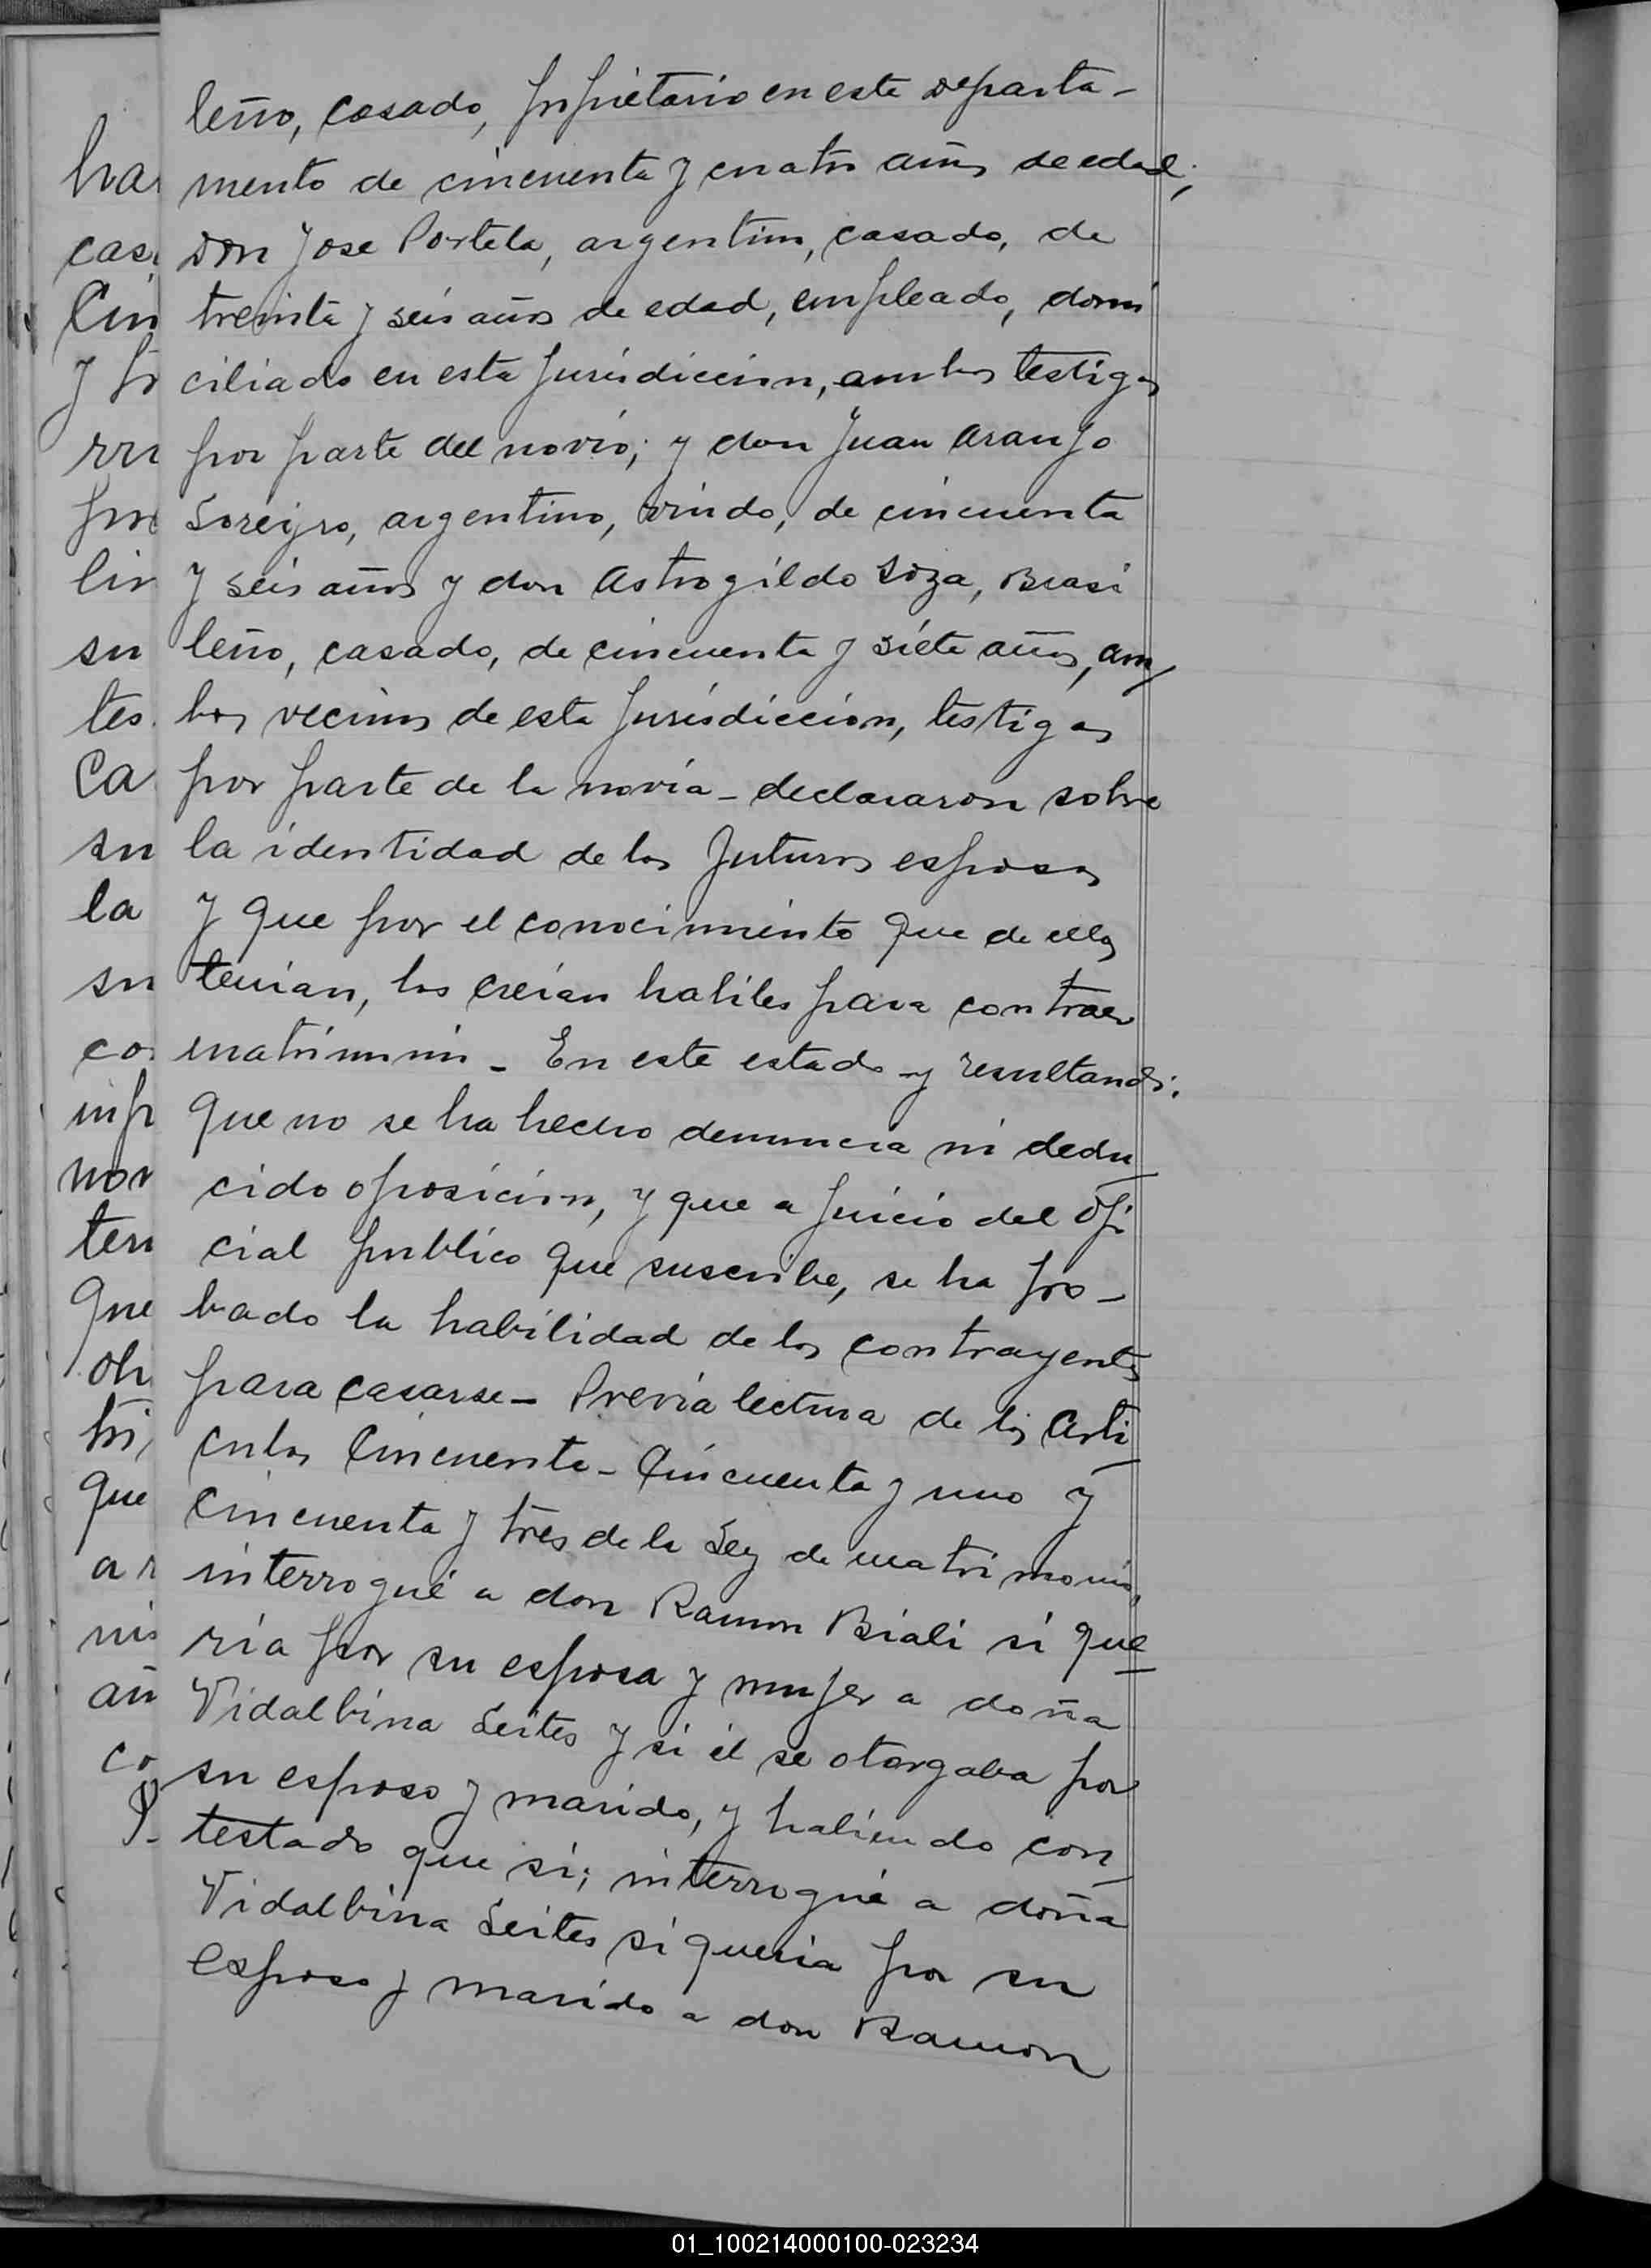 leño, casado, propietario en este departa-
mento de cincuenta y cuatro años de edad;
don Jose Portela, argentino, casado, de
treinta y seis años de edad, empleado, domi
ciliado en esta Jurisdiccion, ambos testigos
por parte del novio; y don Juan Araujo
argentino, viudo, de cincuenta
y seis años y don Astrogildo Soza, Brasi
leño, casado, de cincuenta y siete años, am
bos vecinos de esta Jurisdiccion, testigos
por parte de la novia - declararon sobre
la identidad de los futuros esposos
y que por el conocimiento que de ellos
tenian, los creian habiles para contraer
matrimonio - En este estado y resultando:
que no se ha hecho denuncia ni dedu_
cido oposicion, y que a juicio del ofi
cial publico que suscribe, se ha pro-
bado la habilidad de los contrayentes
para casarse - Previa lectura de los Arti_
culos Cincuenta - Cincuenta y uno y
Cincuenta y tres de la Ley de matrimonio,
interrogué a don Ramon Biali si que_
ria por su esposa y mujer a doña
Vidalbina Leites y si él se otorgaba por
su esposo y marido, y habiendo con_
testado que si; interrogué a doña
Vidalbina Leites si queria por su
esposo y marido a don Ramon
ha
cas
Cin
y
rri
lin
su
tes
Ca
su
la
su
co
inf
nor
ten
que
oh
que
a
nis
añ
co
01_100214000100-023234